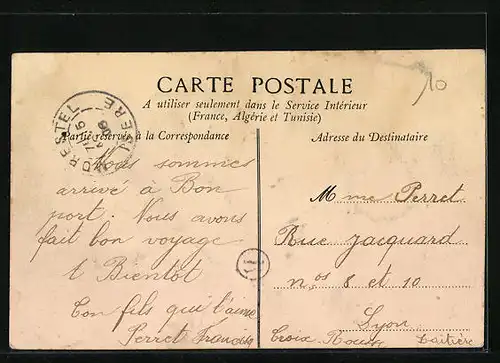 CARTE POSTALE
A utiliser seulement dans le Service Intérieur
(France, Algérie et Tunisie)
Partie réservée à la Correspondance
Adresse du Destinataire
ISERE
10
Nous sommes
arrivé à Bon
port. Nous avons
fait bon voyage
a Bientot
Ton fils qui t'aime
Perret Francis
Mme Perret
Rue Jacquard
nos 8 et 10
Lyon
Croix Rousse laitière